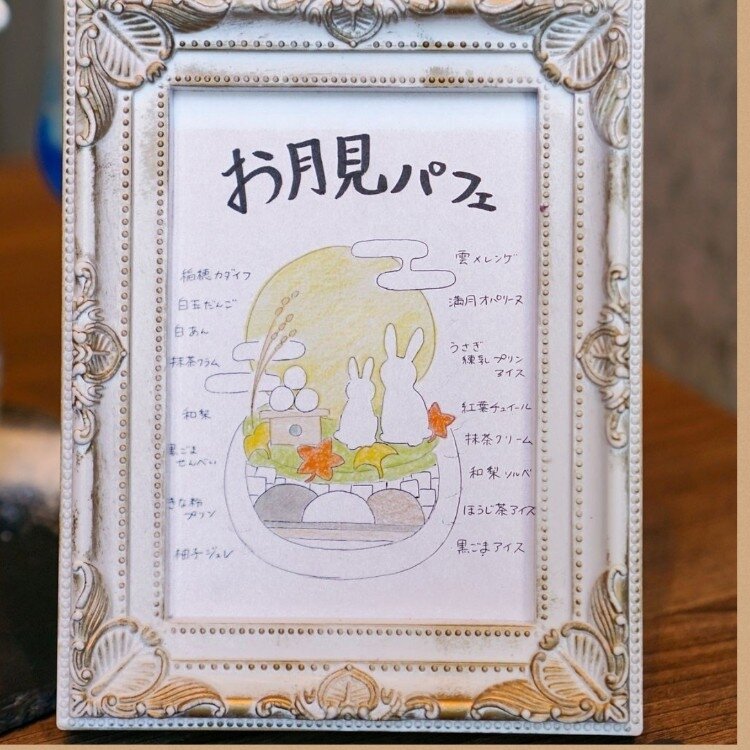 お月見パフェ
稲穂カダイフ
白玉だんご
白あん
抹茶クラム
和梨
黒ごま
せんべい
きな粉
プリン
柚子ジュレ
雲メレンゲ
満月オパリーヌ
うさぎ
練乳プリン
アイス
紅葉チュイール
抹茶クリーム
和梨ソルベ
ほうじ茶アイス
黒ごまアイス